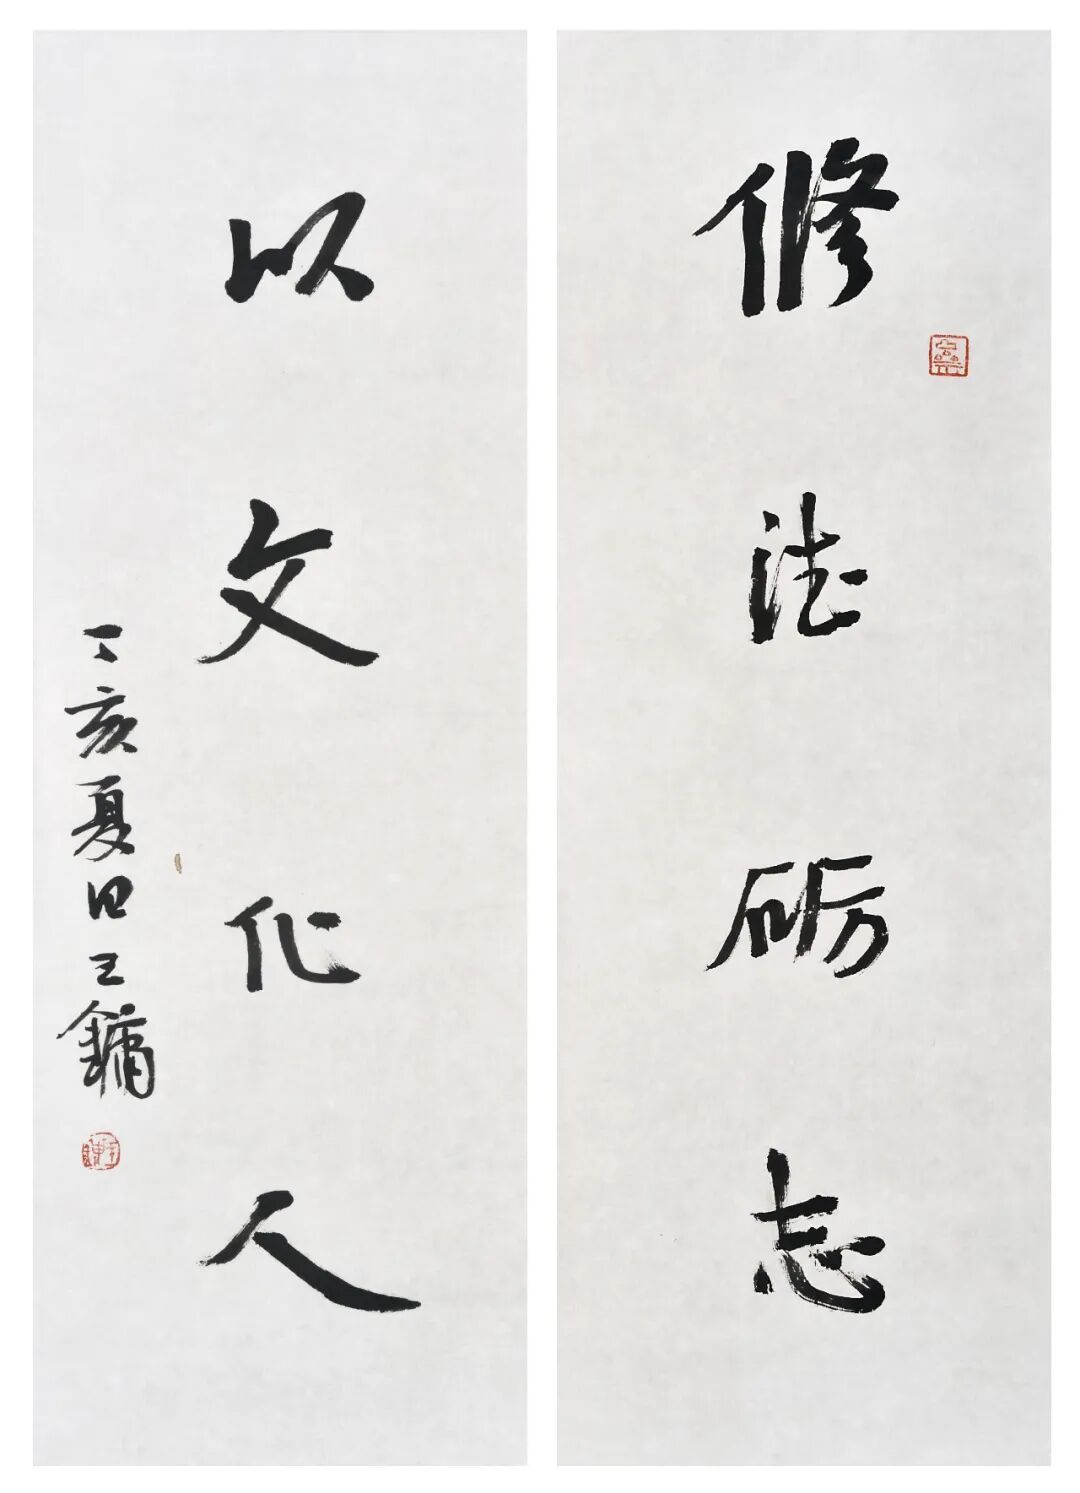 修德砺志
以文化人
丁亥夏日王鏞